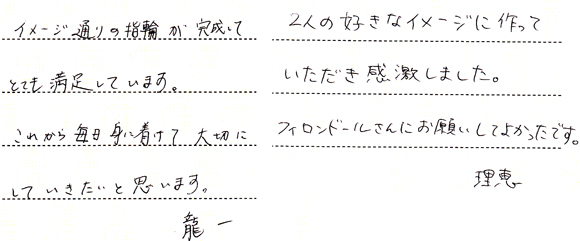 イメージ通りの指輪が完成して
とても満足しています。
これから毎日身に着けて大切に
していきたいと思います。
龍一
2人の好きなイメージに作って
いただき感激しました。
フィロンドールさんにお願いしてよかったです。
理恵